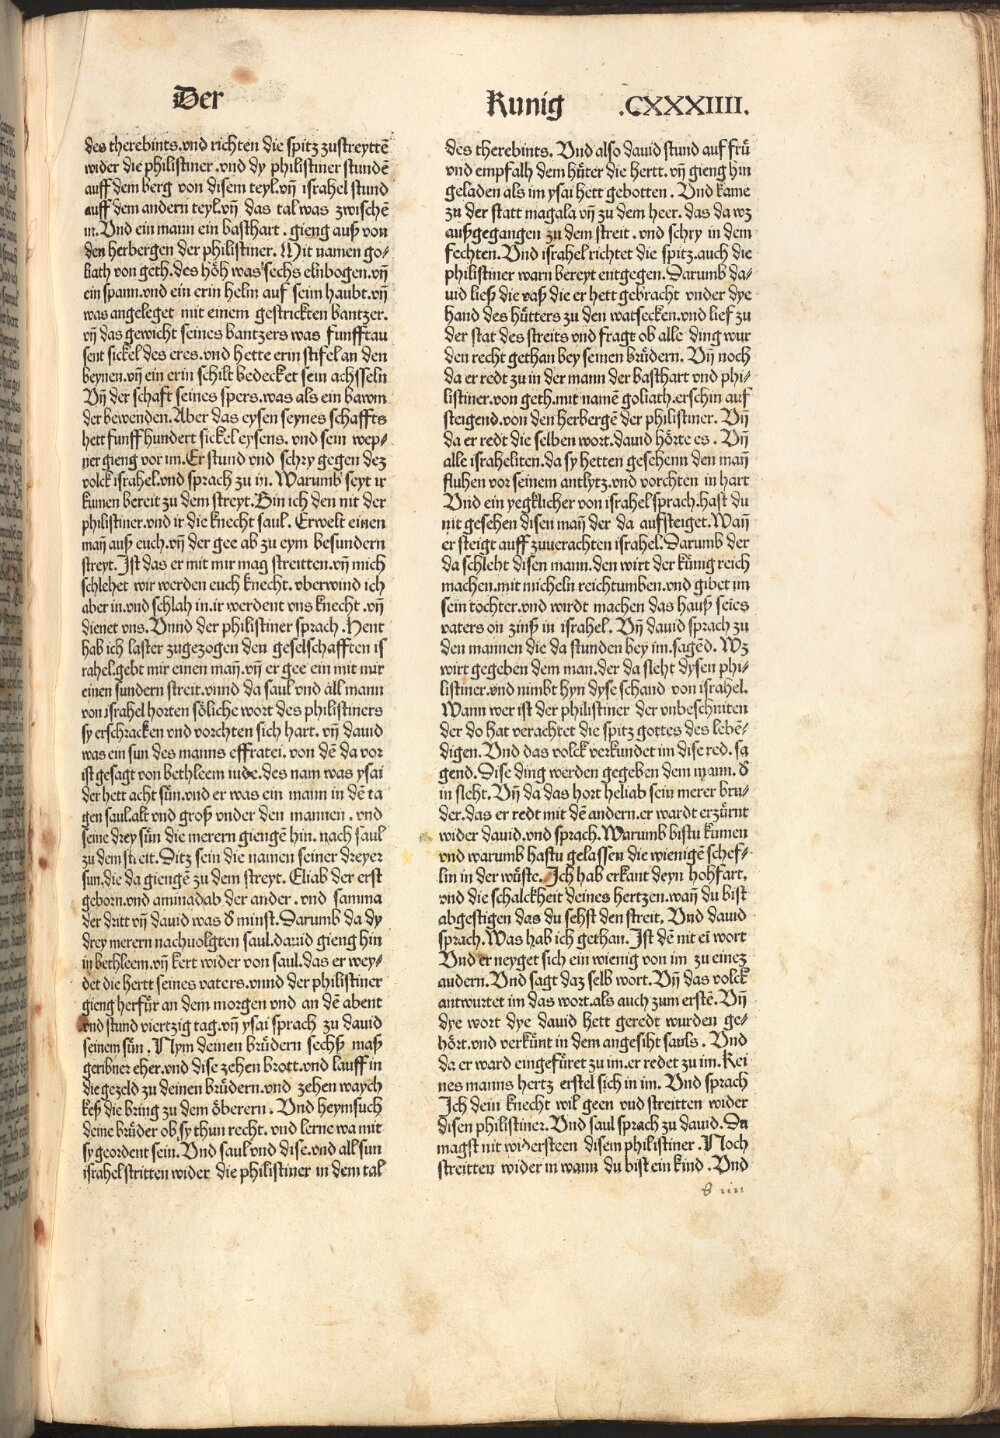 Der
Kunig .CXXXIIII.
des therebints.vnd richten die spitz zustreyttē
wider die philistiner .vnd dy philistiner stundē
auff dem berg von disem teyl.vn̄ israhel stund
auff dem andern teyl.vn̄ das tal was zwischē
in.Vnd ein mann ein basthart . gieng auß von
den herbergen der philistiner. Mit namen go⸗
liath von geth.des höh was sechs elnbogen.vn̄
ein spann.vnd ein erin helm auf seim haubt.vn̄
was angeleget mit einem gestrickten bantzer.
vn̄ das gewicht seines bantzers was funfftau
sent sickel des eres.vnd hette erin stifel an den
beynen.vn̄ ein erin schilt bedecket sein achsseln
Vn̄ der schaft seines spers.was als ein bawm
der bewenden.Aber das eysen seynes schaffts
hett funff hundert sickel eysens. vnd sein wep⸗
ner gieng vor im.Er stund vnd schry gegen dez
volck israhel.vnd sprach zu in. Warumb seyt ir
kumen bereit zu dem streyt.Bin ich den nit der
philistiner.vnd ir die knecht saul. Erwelt einen
man̄ auß euch.vn̄ der gee ab zu eym besundern
streyt.Ist das er mit mir mag streitten.vn̄ mich
schlehet wir werden euch knecht. vberwind ich
aber in.vnd schlah in.ir werdent vns knecht .vn̄
dienet vns.Vnnd der philistiner sprach .Hent
hab ich laster zugezogen den geselschafften is
rahel.gebt mir einen man̄.vn̄ er gee ein mit mir
einen sundern streit.vnnd da saul vnd all mann
von israhel horten söliche wort des philistiners
sy erschracken vnd vorchten sich hart. vn̄ dauid
was ein sun des manns effratei. von dē da vor
ist gesagt von bethleem iude.des nam was ysai
der hett acht sün.vnd er was ein mann in dē ta
gen saul.alt vnd groß vnder den mannen . vnd
seine drey sün die merern giengē hin. nach saul
zu dem streit.Ditz sein die namen seiner dreyer
sun.die da giengē zu dem streyt. Eliab der erst
geborn.vnd aminadab der ander . vnd samma
der dritt vn̄ dauid was d̄ minst.Darumb da dy
drey merern nachuolgten saul.dauid gieng hin
in bethleem.vn̄ kert wider von saul.das er wey⸗
det die hertt seines vaters.vnnd der philistiner
gieng herfür an dem morgen vnd an dē abent
vnd stund viertzig tag.vn̄ ysai sprach zu dauid
seinem sün . Nym deinen brüdern sechß maß
geribner eher.vnd dise zehen brott.vnd lauff in
die gezeld zu deinen brüdern.vnd zehen waych
keß die bring zu dem öberern . Vnd heymsuch
deine brüder ob sy thun recht. vnd lerne wa mit
sy geordent sein. Vnd saul vnd dise.vnd all sun
israhel stritten wider die philistiner in dem tal
des therebints. Vnd also dauid stund auf frü
vnd empfalh dem hüter die hertt. vn̄ gieng hin
geladen als im ysai hett gebotten . Vnd kame
zu der statt magala vn̄ zu dem heer. das da wz
außgegangen zu dem streit . vnd schry in dem
fechten.Vnd israhel richtet die spitz.auch die
philistiner warn bereyt entgegen.Darumb da⸗
uid ließ die vaß die er hett gebracht vnder dye
hand des hütters zu den watsecken.vnd lief zu
der stat des streits vnd fragt ob alle ding wur
den recht gethan bey seinen brüdern. Vn̄ noch
da er redt zu in der mann der basthart vnd phi⸗
listiner.von geth.mit namē goliath.erschin auf
steigend.von den herbergē der philistiner. Vn̄
da er redt die selben wort.dauid hörte es . Vn̄
alle israheliten.da sy hetten gesehenn den man̄
fluhen vor seinem antlytz.vnd vorchten in hart
Vnd ein yegklicher von israhel sprach.hast du
nit gesehen disen man̄ der da aufsteiget.Wan̄
er steigt auff zuuerachten israhel.Darumb der
da schleht disen mann.den wirt der künig reich
machen.mit micheln reichtumben.vnd gibet im
sein tochter.vnd wirdt machen das hauß seies
vaters on zinß in israhel. Vn̄ dauid sprach zu
den mannen die da stunden bey im.sagēd. Wz
wirt gegeben dem man.der da sleht dysen phi⸗
listiner.vnd nimbt hyn dyse schand von israhel.
Wann wer ist der philistiner der vnbeschniten
der do hat verachtet die spitz gottes des lebē⸗
digen. Vnd das volck verkundet im dise red. sa
gend.Dise ding werden gegeben dem mann. d̄
in sleht. Vn̄ da das hort heliab sein merer bru⸗
der.das er redt mit dē andern.er wardt erzürnt
wider dauid.vnd sprach.Warumb bistu kumen
vnd warumb hastu gelassen die wienigē schef⸗
lin in der wüste. Ich hab erkant deyn hohfart,
vnd die schalckheit deines hertzen.wan̄ du bist
abgestigen das du sehst den streit. Vnd dauid
sprach.Was hab ich gethan. Ist dē nit ei wort
Vnd er neyget sich ein wienig von im zu einez
andern.Vnd sagt daz selb wort.Vn̄ das volck
antwurtet im das wort.als auch zum erstē.Vn̄
dye wort dye dauid hett geredt wurden ge⸗
hört.vnd verkünt in dem angesiht sauls . Vnd
da er ward eingefüret zu im.er redet zu im.Kei
nes manns hertz erstel sich in im. Vnd sprach
Ich dein knecht wil geen vnd streitten wider
disen philistiner. Vnd saul sprach zu dauid. Du
magst nit widersteen disem philistiner . Noch
streitten wider in wann du bist ein kind .Vnd